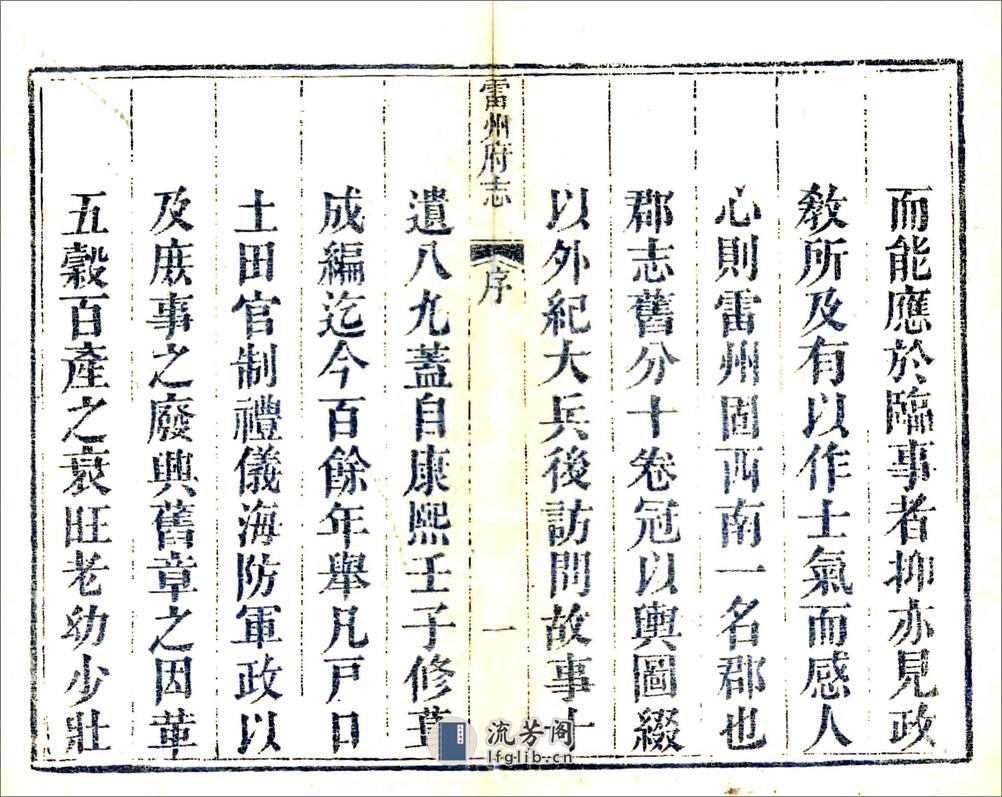 而能應於臨事者抑亦見政
教所及有以作士氣而感人
心則雷州固西南一名郡也
郡志舊分十卷冠以輿圖綴
以外紀大兵後訪問故事十
雷州府志 序 一
遺八九蓋自康熙壬子修葺
成編迄今百餘年舉凡戸口
土田官制禮儀海防軍政以
及庶事之廢興舊章之因革
五穀百產之衰旺老幼少壯
流芳阁
lfglib.com